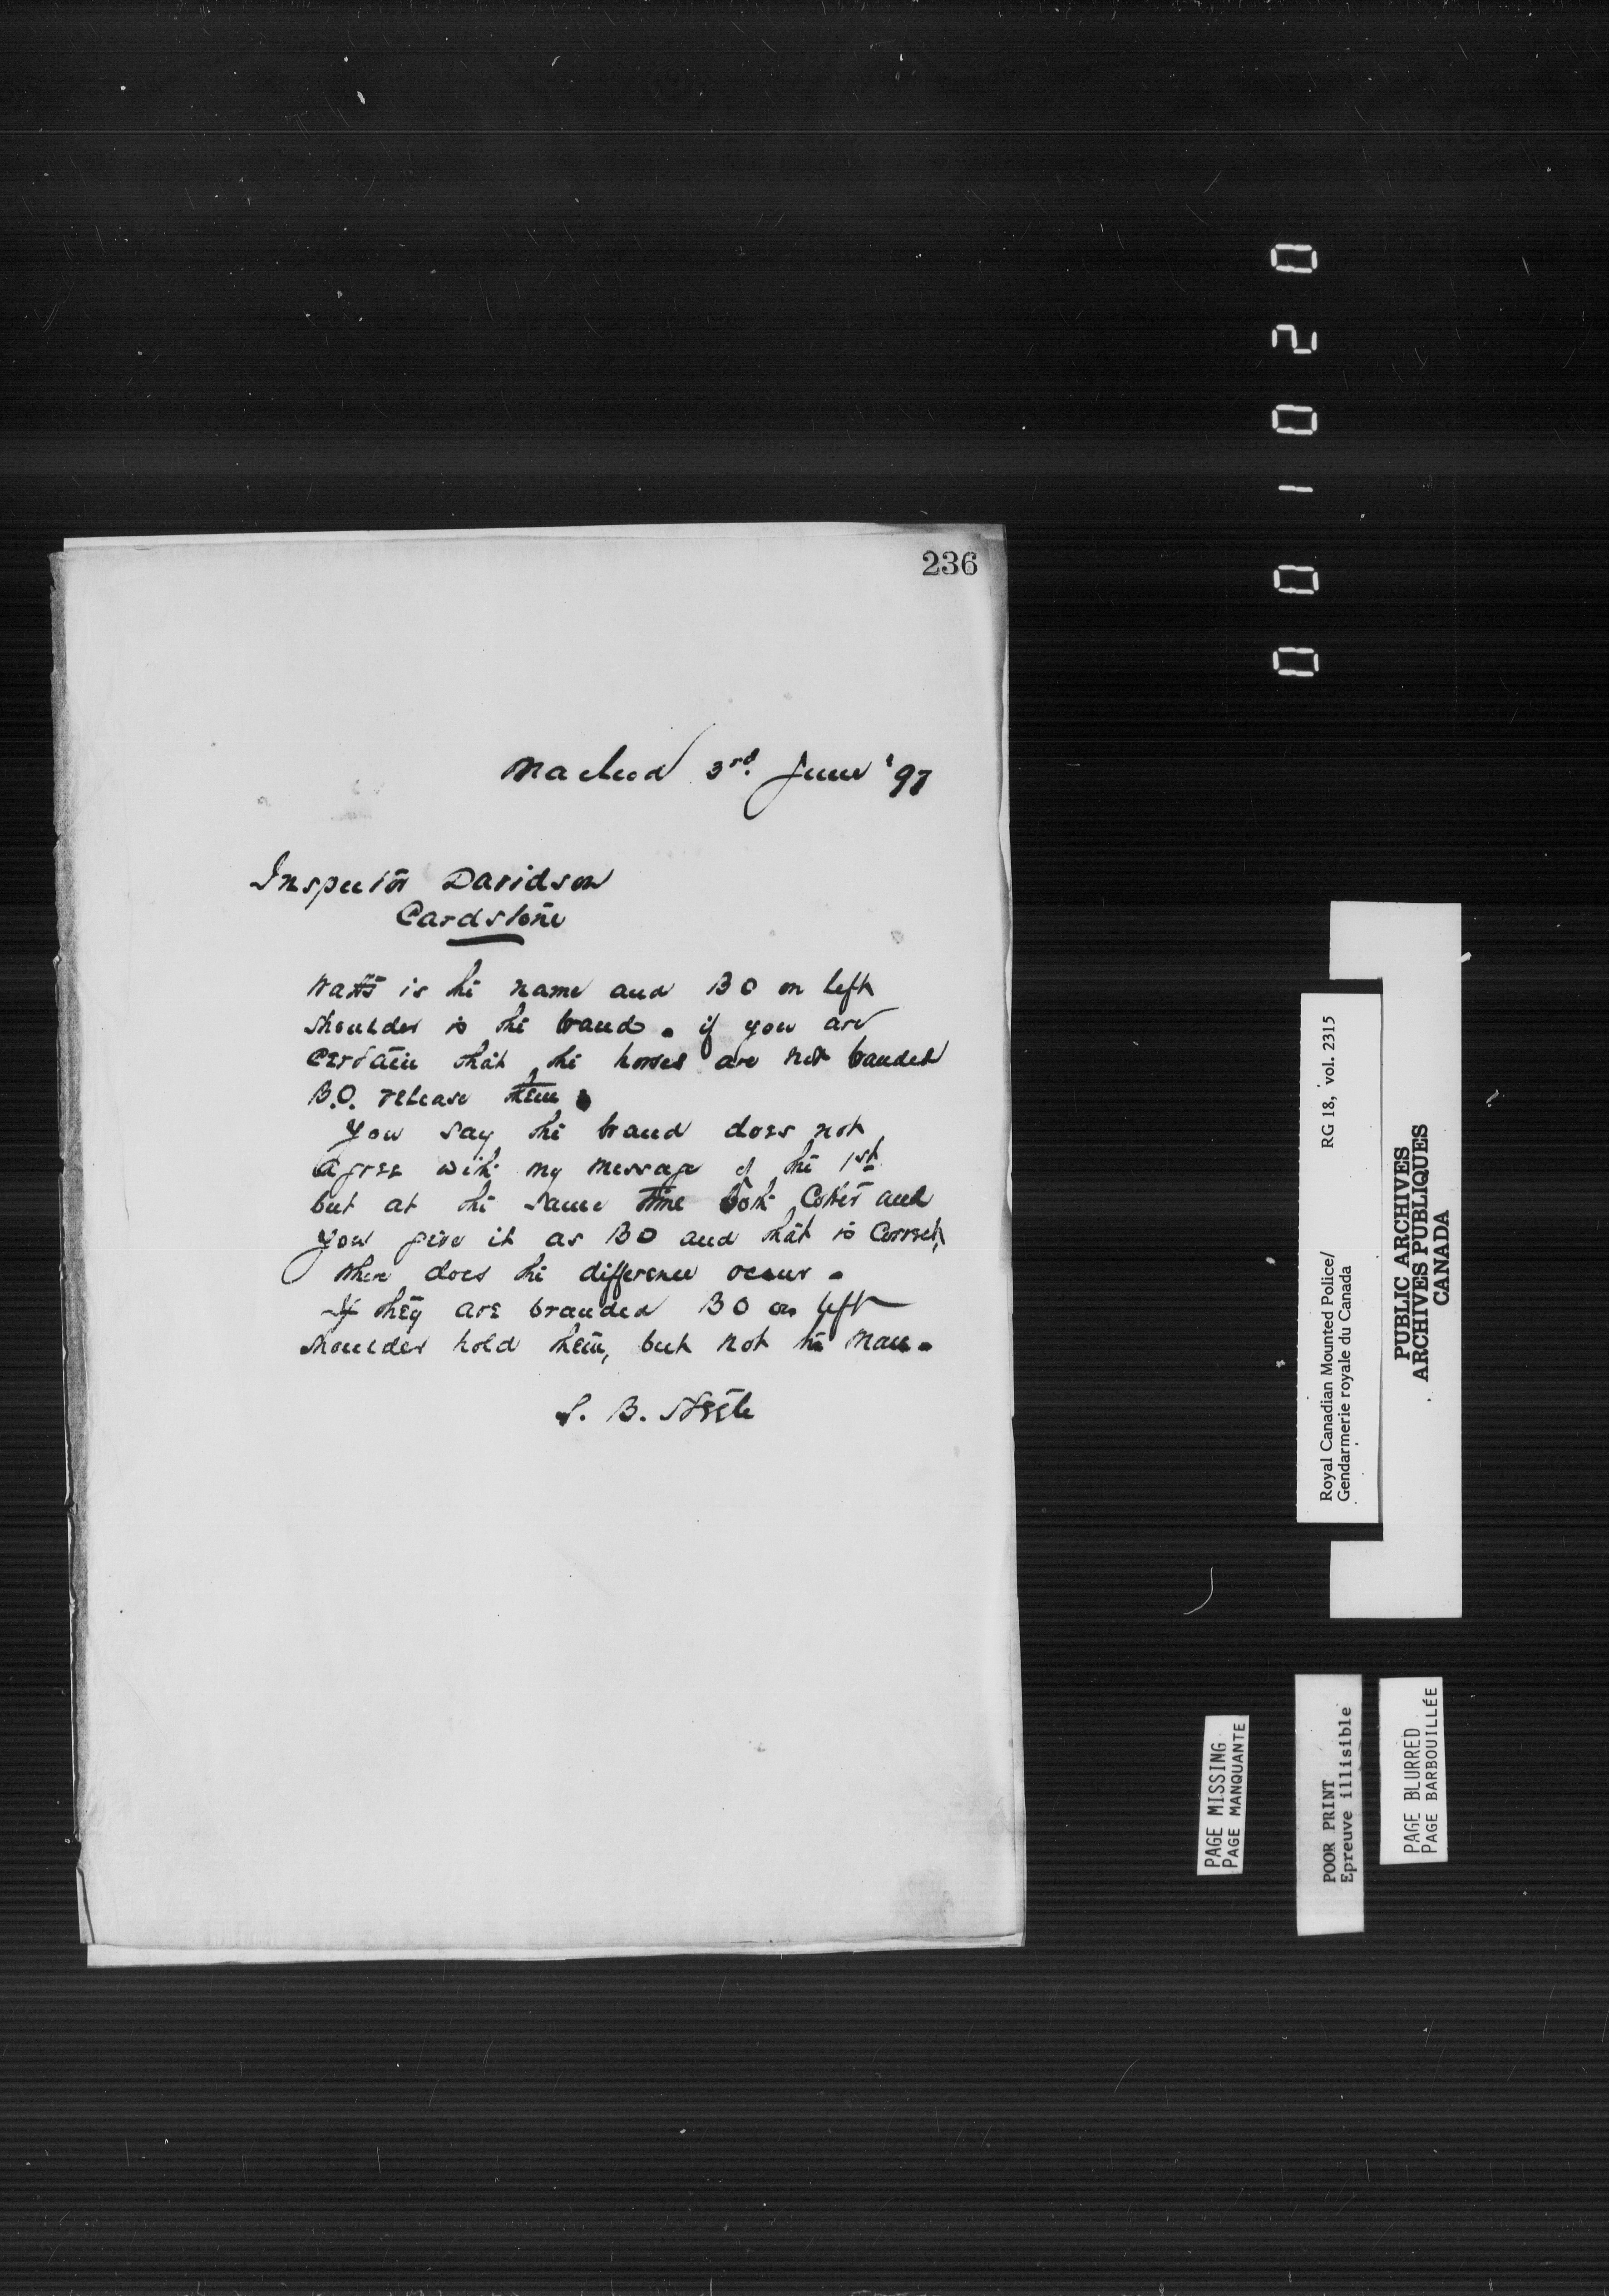 236
Macleod 3rd June '97
Inspector Davidson
Cardstone
Watts is the name and BO on left
shoulder is the brand. if you are
Certain that the horses are not branded
B.O. release them.
You say the brand does not
agree with my message of the 1st
but at the same time both Coster and
You give it as BO and that is Correct,
where does the difference occur.
If they are branded BO on left
shoulder hold them, but not the man.
S. B. Steele
001020
Royal Canadian Mounted Police/ RG 18, vol. 2315
Gendarmerie royale du Canada
PUBLIC ARCHIVES
ARCHIVES PUBLIQUES
CANADA
PAGE MISSING
PAGE MANQUANTE
POOR PRINT
Epreuve illisible
PAGE BLURRED
PAGE BARBOUILLÉE